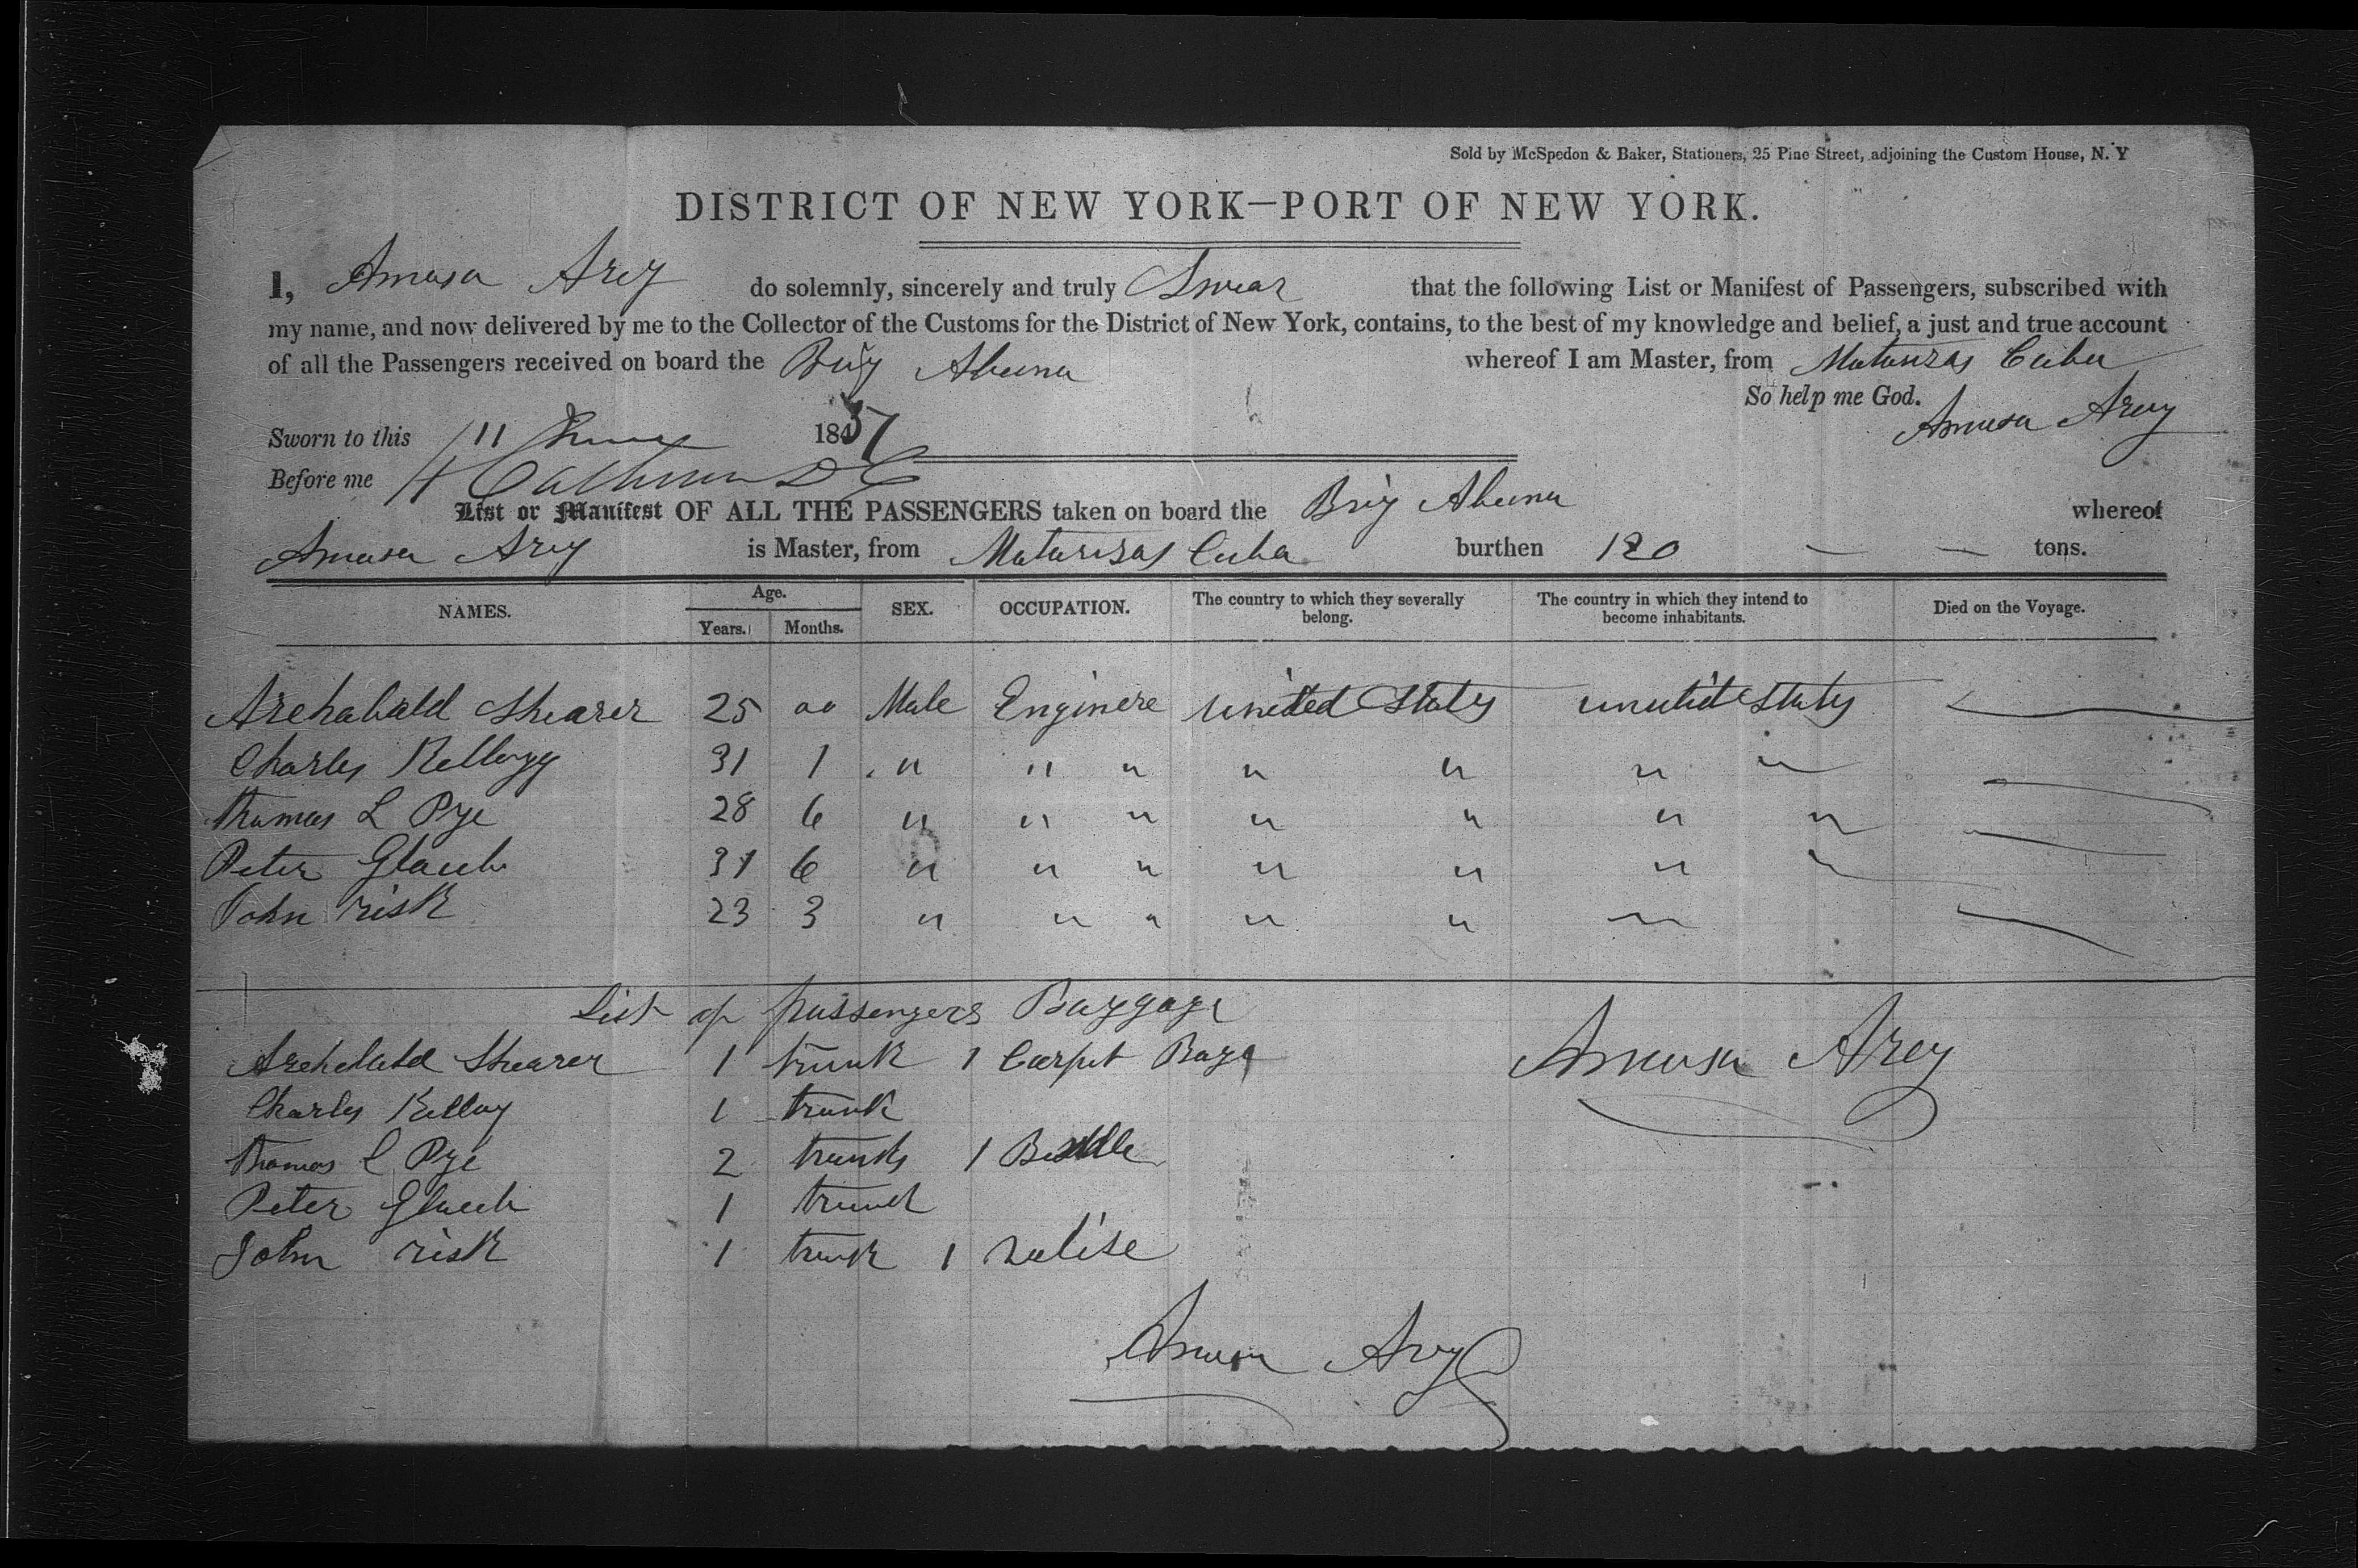 Sold by McSpedon & Baker, Stationers, 25 Pine Street, adjoining the Custom House, N. Y
DISTRICT OF NEW YORK—PORT OF NEW YORK.
I, Amasa Arey do solemnly, sincerely and truly Swear that the following List or Manifest of Passengers, subscribed with
my name, and now delivered by me to the Collector of the Customs for the District of New York, contains, to the best of my knowledge and belief, a just and true account
of all the Passengers received on board the Brig whereof I am Master, from Matanzas Cuba
So help me God.
Sworn to this 11 184 Amasa Arey
Before me
List or Manifest OF ALL THE PASSENGERS taken on board the Brig whereof
Amasa Arey is Master, from Matanzas Cuba burthen 120 — — tons.
NAMES. Age. SEX. OCCUPATION. The country to which they severally belong. The country in which they intend to become inhabitants. Died on the Voyage.
Years. Months.
Archabald Shearer 25 00 Male Enginere united States unutid States
Charles Kellogg 31 1 " " " " " " "
Thomas L Pye 28 6 " " " " " " "
Peter 31 6 " " " " " " "
John risk 23 3 " " " " " "
List of passengers Baggage
Archabald Shearer 1 trunk 1 Carpet Bag Amasa Arey
Charles Kellog 1 trunk
Thomas L Pye 2 trunks 1
Peter 1 trunk
John risk 1 trunk 1 valise
Amasa Arey